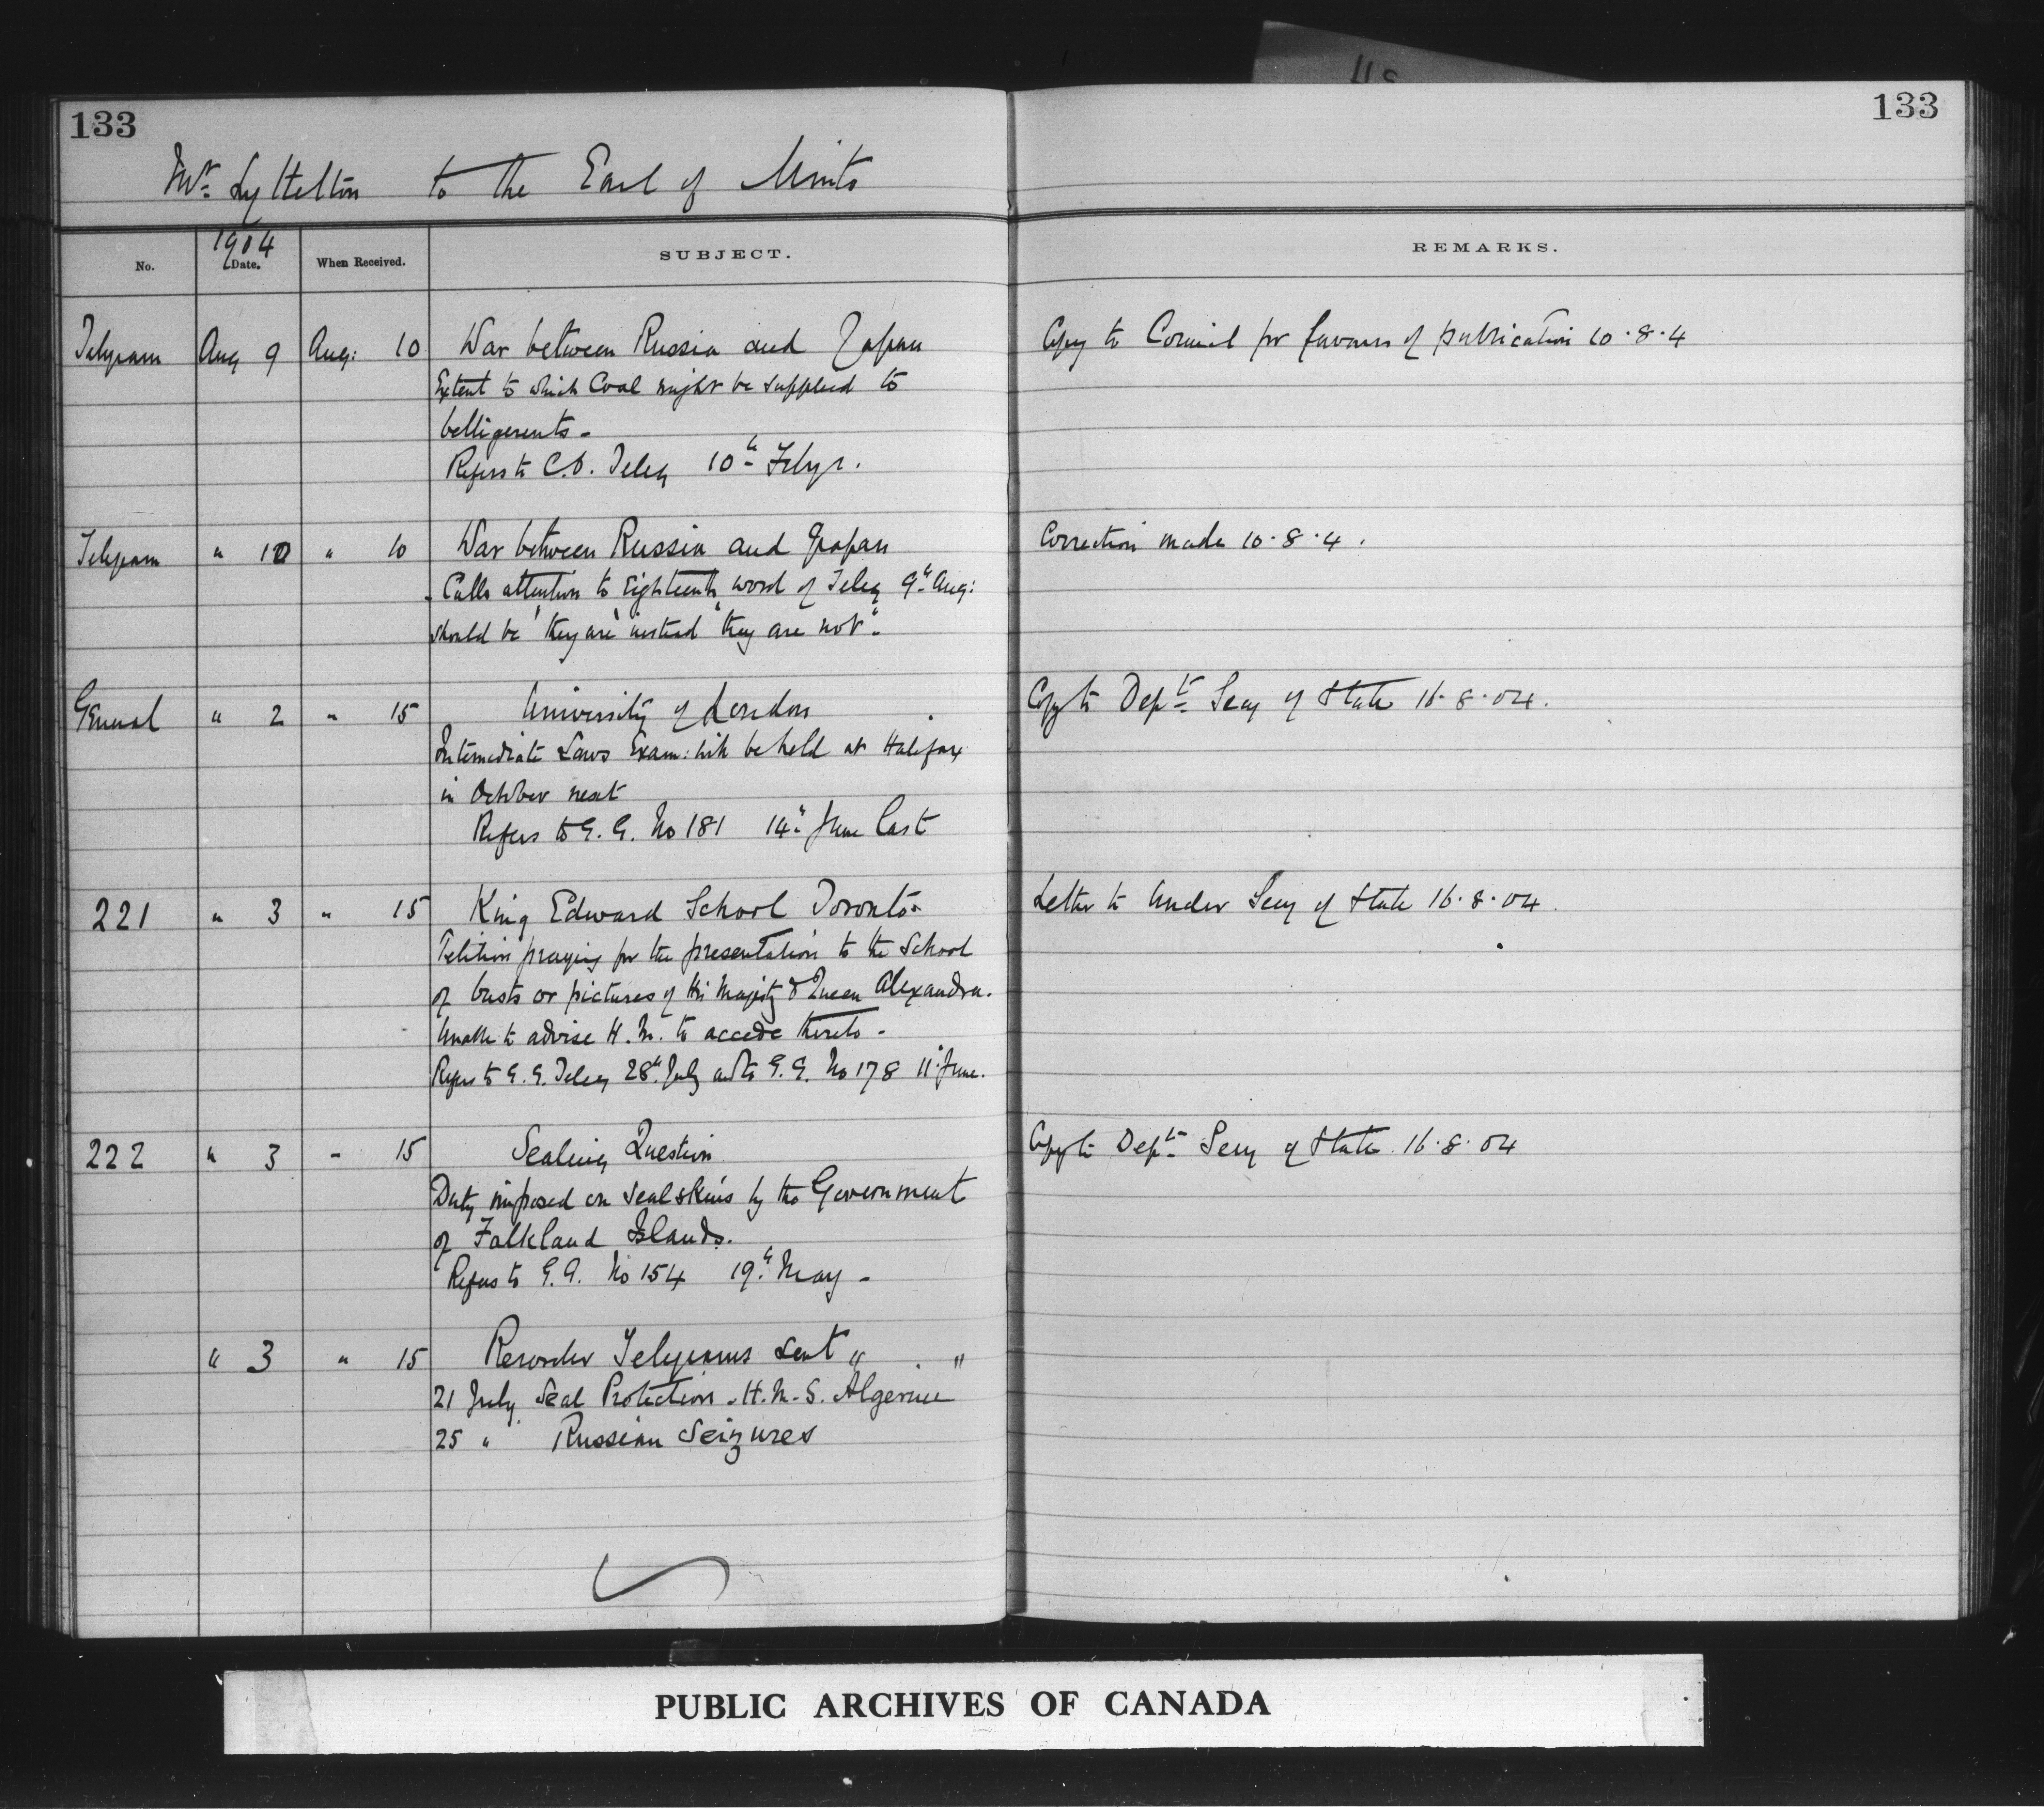 133
133
Mr. Lyttelton to the Earl of Minto
No.
1904
Date.
When Received.
SUBJECT.
REMARKS.
Telegram Aug 9 Aug: 10 War between Russia and Japan
Copy to Council for favour of publication 10.8.4
Extent to which Coal might be supplied to
belligerents -
Refers to C.O. Teleg 10th Feby.
Telegram " 10 " 10 War between Russia and Japan
Correction made 10.8.4.
Calls attention to Eighteenth word of Teleg 9th Aug:
should be "they are" instead "they are not".
General " 2 " 15 University of London
Copy to Dept. Secy of State 16.8.04.
Intermediate Laws Exam: will be held at Halifax
in October next
Refers to G.G. No 181 14th June last
221 " 3 " 15 King Edward School Toronto -
Letter to Under Secy of State 16.8.04.
Petition praying for the presentation to the School
of busts or pictures of His Majesty & Queen Alexandra.
Unable to advise H.M. to accede thereto -
Refers to G.G. Teleg 28th July and to G.G. No 178 11th June.
222 " 3 " 15 Sealing Question
Copy to Dept. Secy of State. 16.8.04
Duty imposed on Sealskins by the Government
of Falkland Islands.
Refers to G.G. No 154 19th May -
" 3 " 15 Recorder Telegrams sent " "
21 July Seal Protection - H.M.S. Algerine
25 " Russian Seizures
PUBLIC ARCHIVES OF CANADA